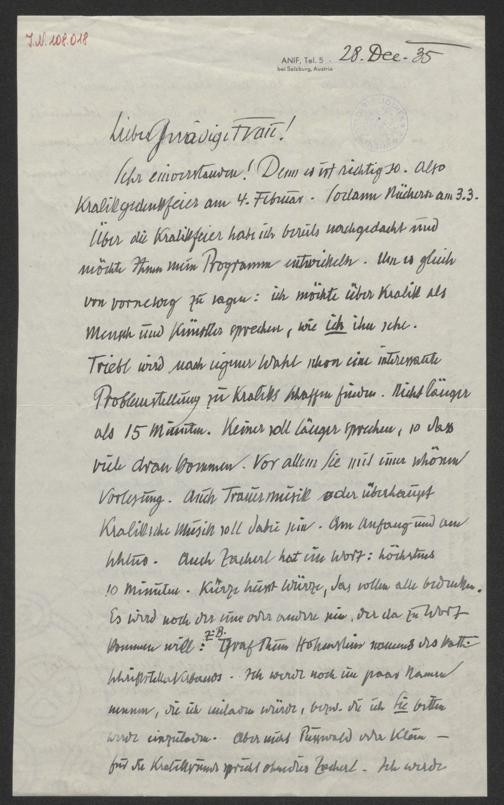 J.N. 108.018
ANIF, Tel. 5.
bei Salzburg, Austria
28. Dec. 35
Liebe Gnädige Frau!
Sehr einverstanden! Denn es ist richtig so. Also
Kralikgedenkfeier am 4. Februar. Sodann Bücherei am 3.3.
Über die Kralikfeier habe ich bereits nachgedacht und
möchte Ihnen mein Programm entwickeln. Um es gleich
von vorneweg zu sagen: ich möchte über Kralik als
Mensch und Künstler sprechen, wie ich ihn sehe.
Triebl wird nach eigener Wahl schon eine interessante
Problemstellung zu Kraliks Schaffen finden. Nicht länger
als 15 Minuten. Keiner soll länger sprechen, so dass
viele dran kommen. Vor allem Sie mit einer schönen
Vorlesung. Auch Trauermusik oder überhaupt
Kraliksche Musik soll dabei sein. Am Anfang und am
Schluss. Auch Zacherl hat ein Wort: höchstens
10 Minuten. Kürze heisst Würze, das sollen alle bedenken.
Es wird noch der eine oder andere sein, der da zu Wort
kommen will: z.B. Graf Thun Hohenstein namens des kath.
Schriftstellerverbands. Ich werde noch ein paar Namen
nennen, die ich einladen würde, bezw. die ich Sie bitten
werde einzuladen. Aber oder Klein —
für die Kralikrunde spricht ohnedies Zacherl. Ich werde